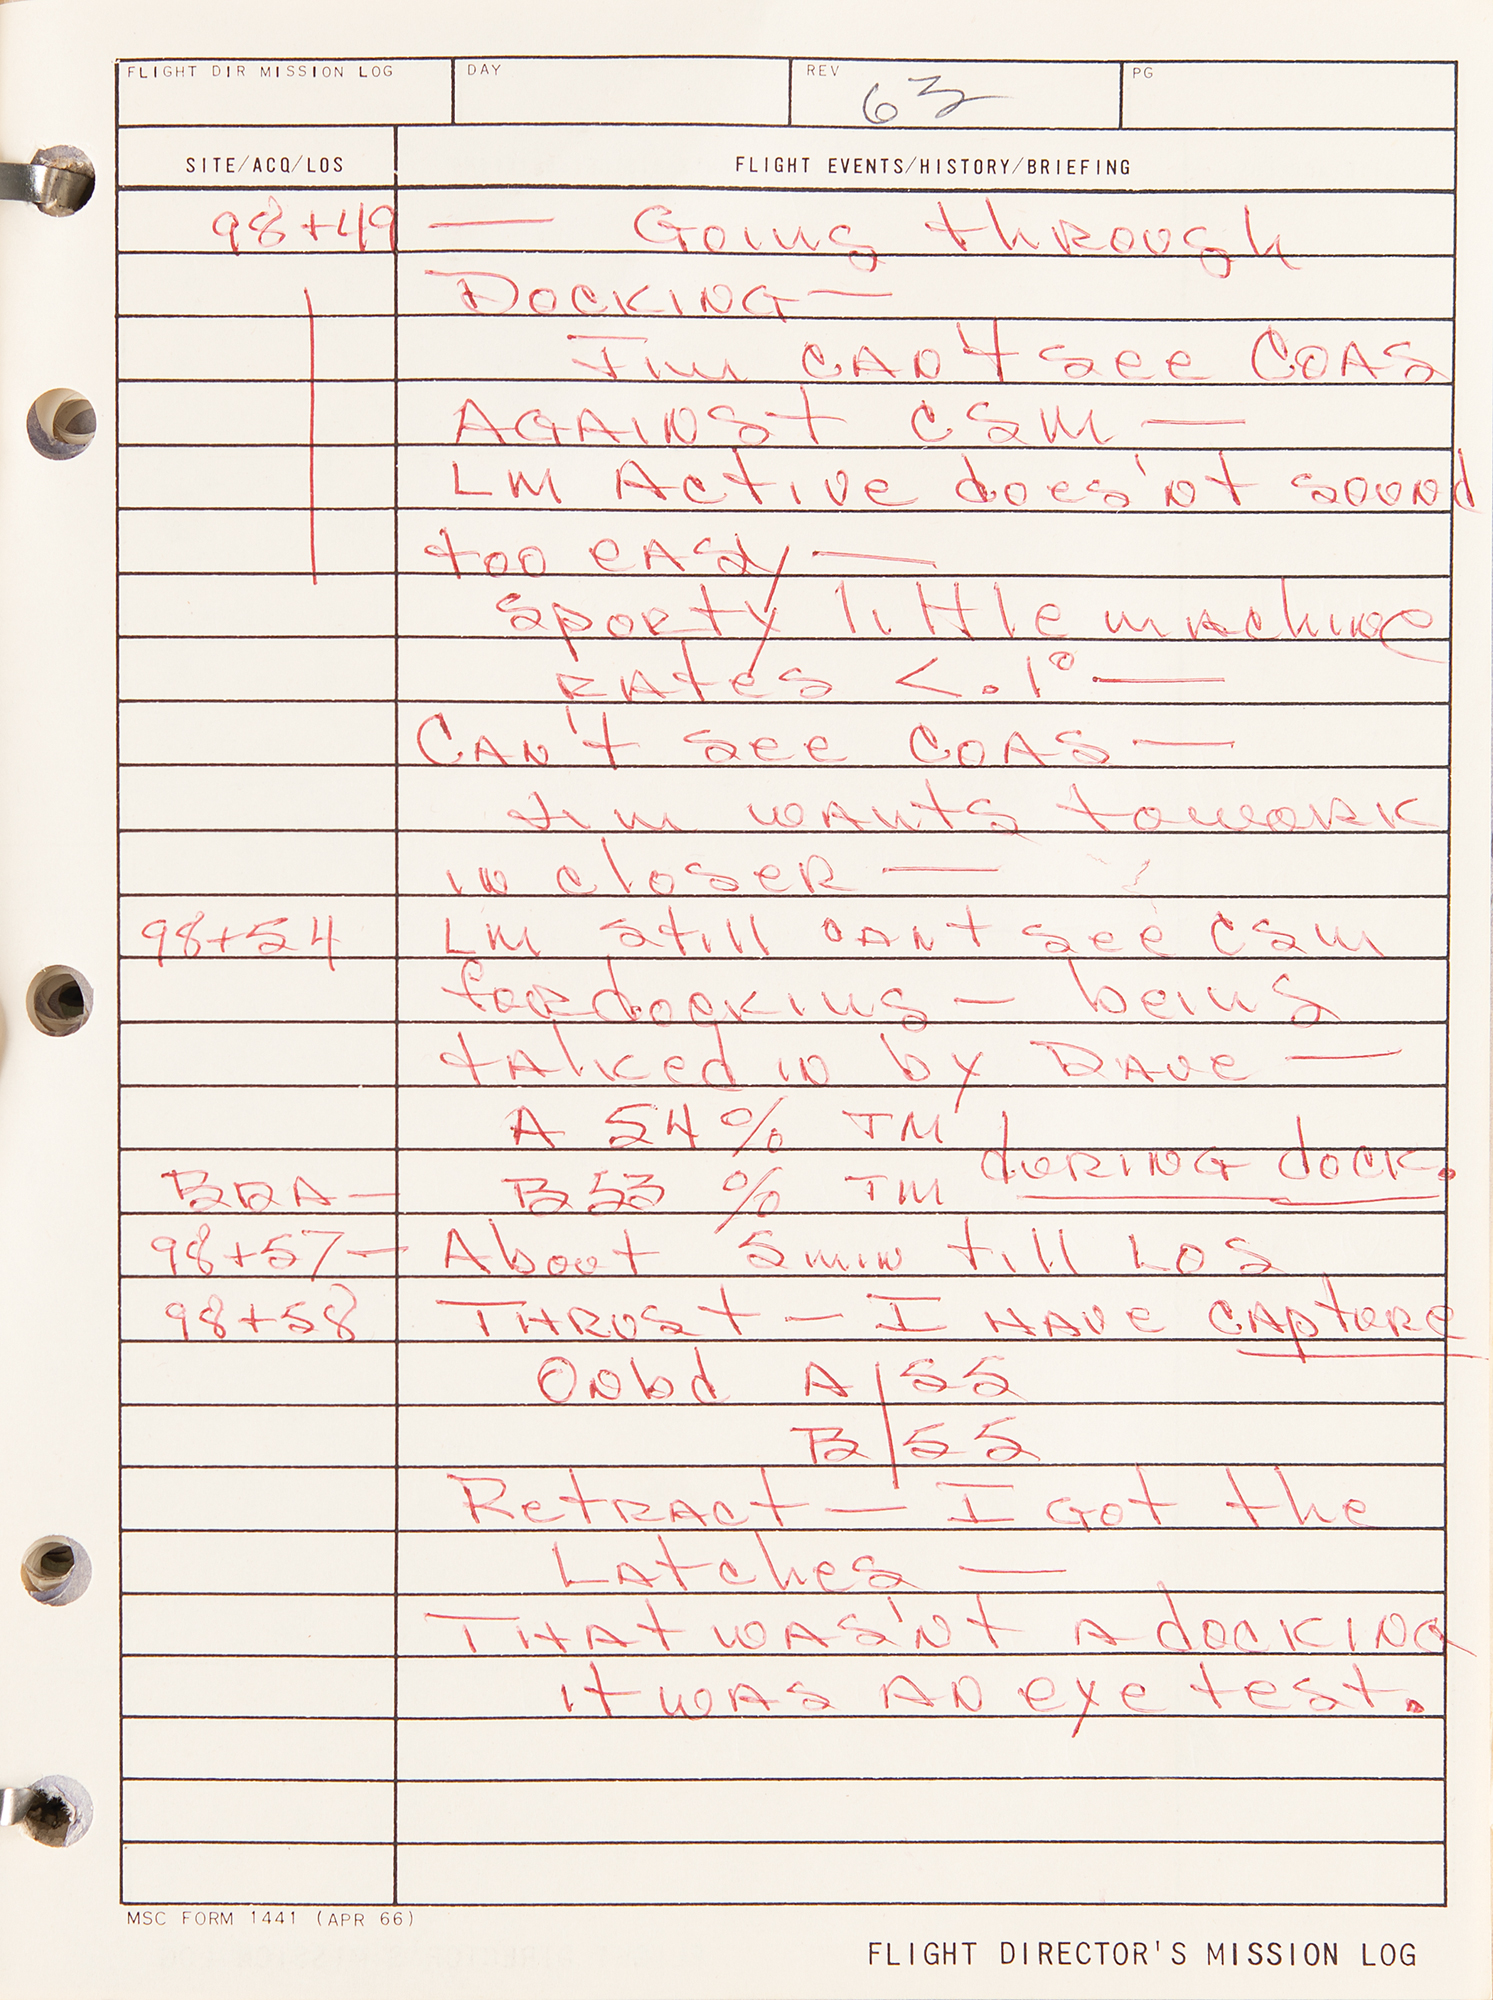 FLIGHT DIR MISSION LOG DAY REV 63 PG
SITE/ACQ/LOS FLIGHT EVENTS/HISTORY/BRIEFING
98+49 — Going through
DOCKING —
Jim CAN't see COAS
AGAINST CSM —
LM Active does'nt sound
too eASy —
sporty little machine
RAtes <.1° —
CAN't see COAS —
Jim wants to work
in closeR —
98+54 LM still can't see CSM
foR docking — being
tALked in by DAve —
A 54% TM
duRING dock.
BDA — B 53% TM
98+57 — About 5 min till LOS
98+58 THRUSt — I HAVe CAptuRe
Onbd A/55
B/55
RetRAct — I Got the
LAtches —
THAt wAS'Nt A docKING
it wAS AN eye test.
MSC FORM 1441 (APR 66)
FLIGHT DIRECTOR'S MISSION LOG